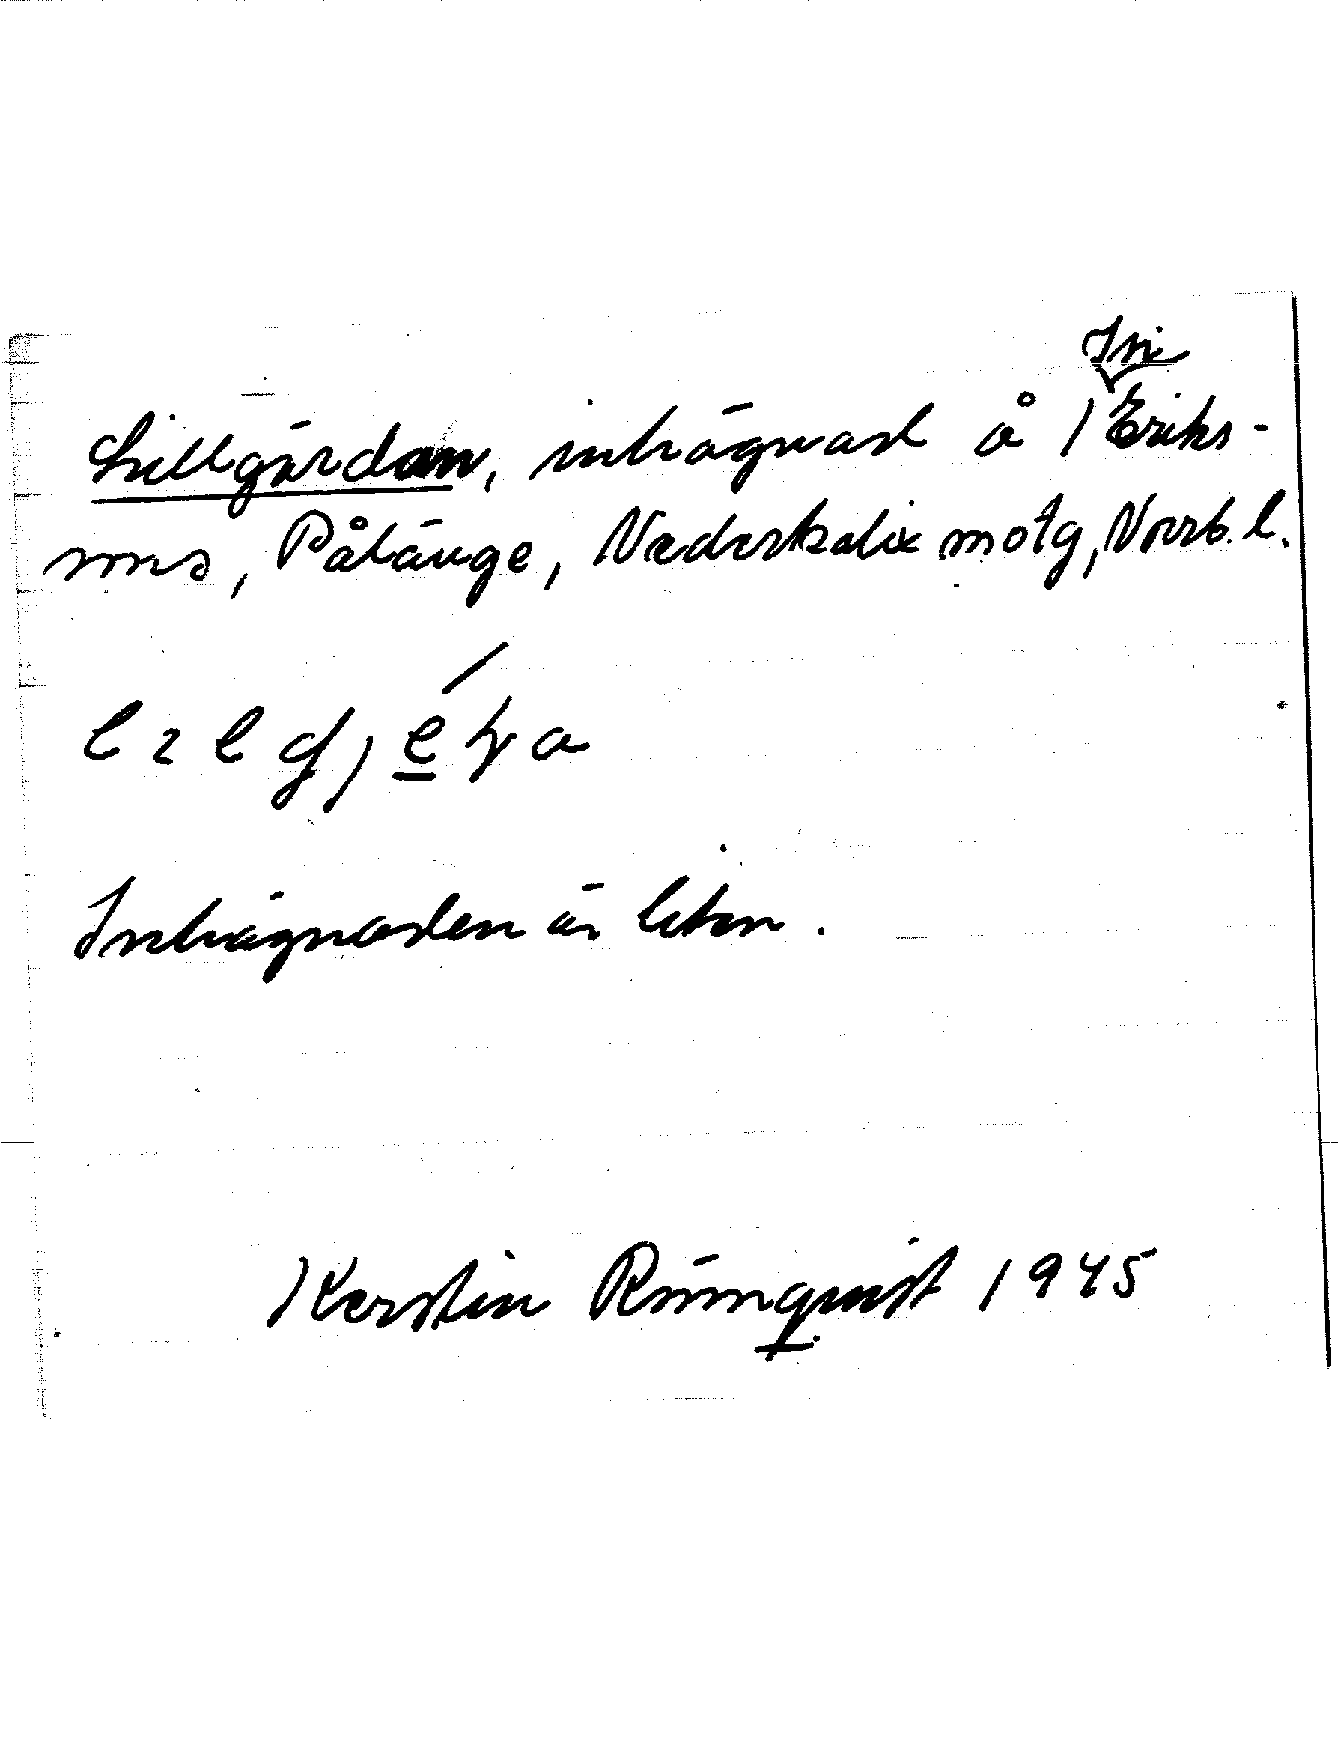 Jni
Lillgärdan, inhägnad å 1 Eriks-
sons, Pålänge, Nederkalix motg, Norrb. l.
Inhägnaden är liten.
Kerstin Rönnquist 1945